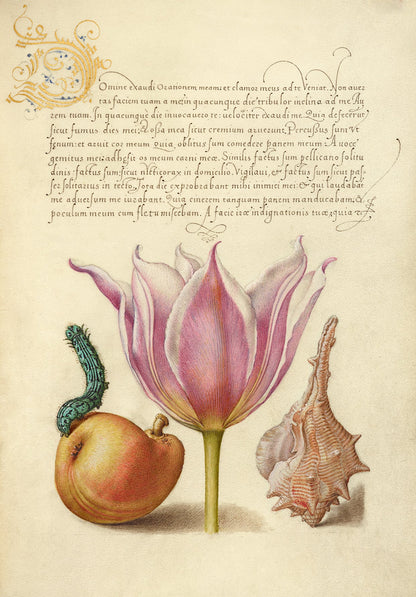 Domine exaudi Orationem meam: et clamor meus ad te Veniat. Non aver
tas faciem tuam a me: in quacunque die tribulor inclina ad me Au
rem tuam. In quacunque die invocavero te: velociter exaudi me. Quia defecerūt
sicut fumus dies mei: & ossa mea sicut cremium aruerunt. Percussus sum Vt
fenum: et aruit cor meum quia oblitus sum comedere panem meum. A voce
gemitus mei adhesit os meum carni meæ. Similis factus sum pellicano solitu
dinis factus sum sicut nicticorax in domicilio. Vigilavi, & factus sum sicut pas
ser solitarius in tecto. Tota die exprobrabant mihi inimici mei: & qui laudabāt
me adversum me iurabant. Quia cinerem tanquam panem manducabam: &
poculum meum cum fletu miscebam. A facie iræ indignationis tuæ: quia